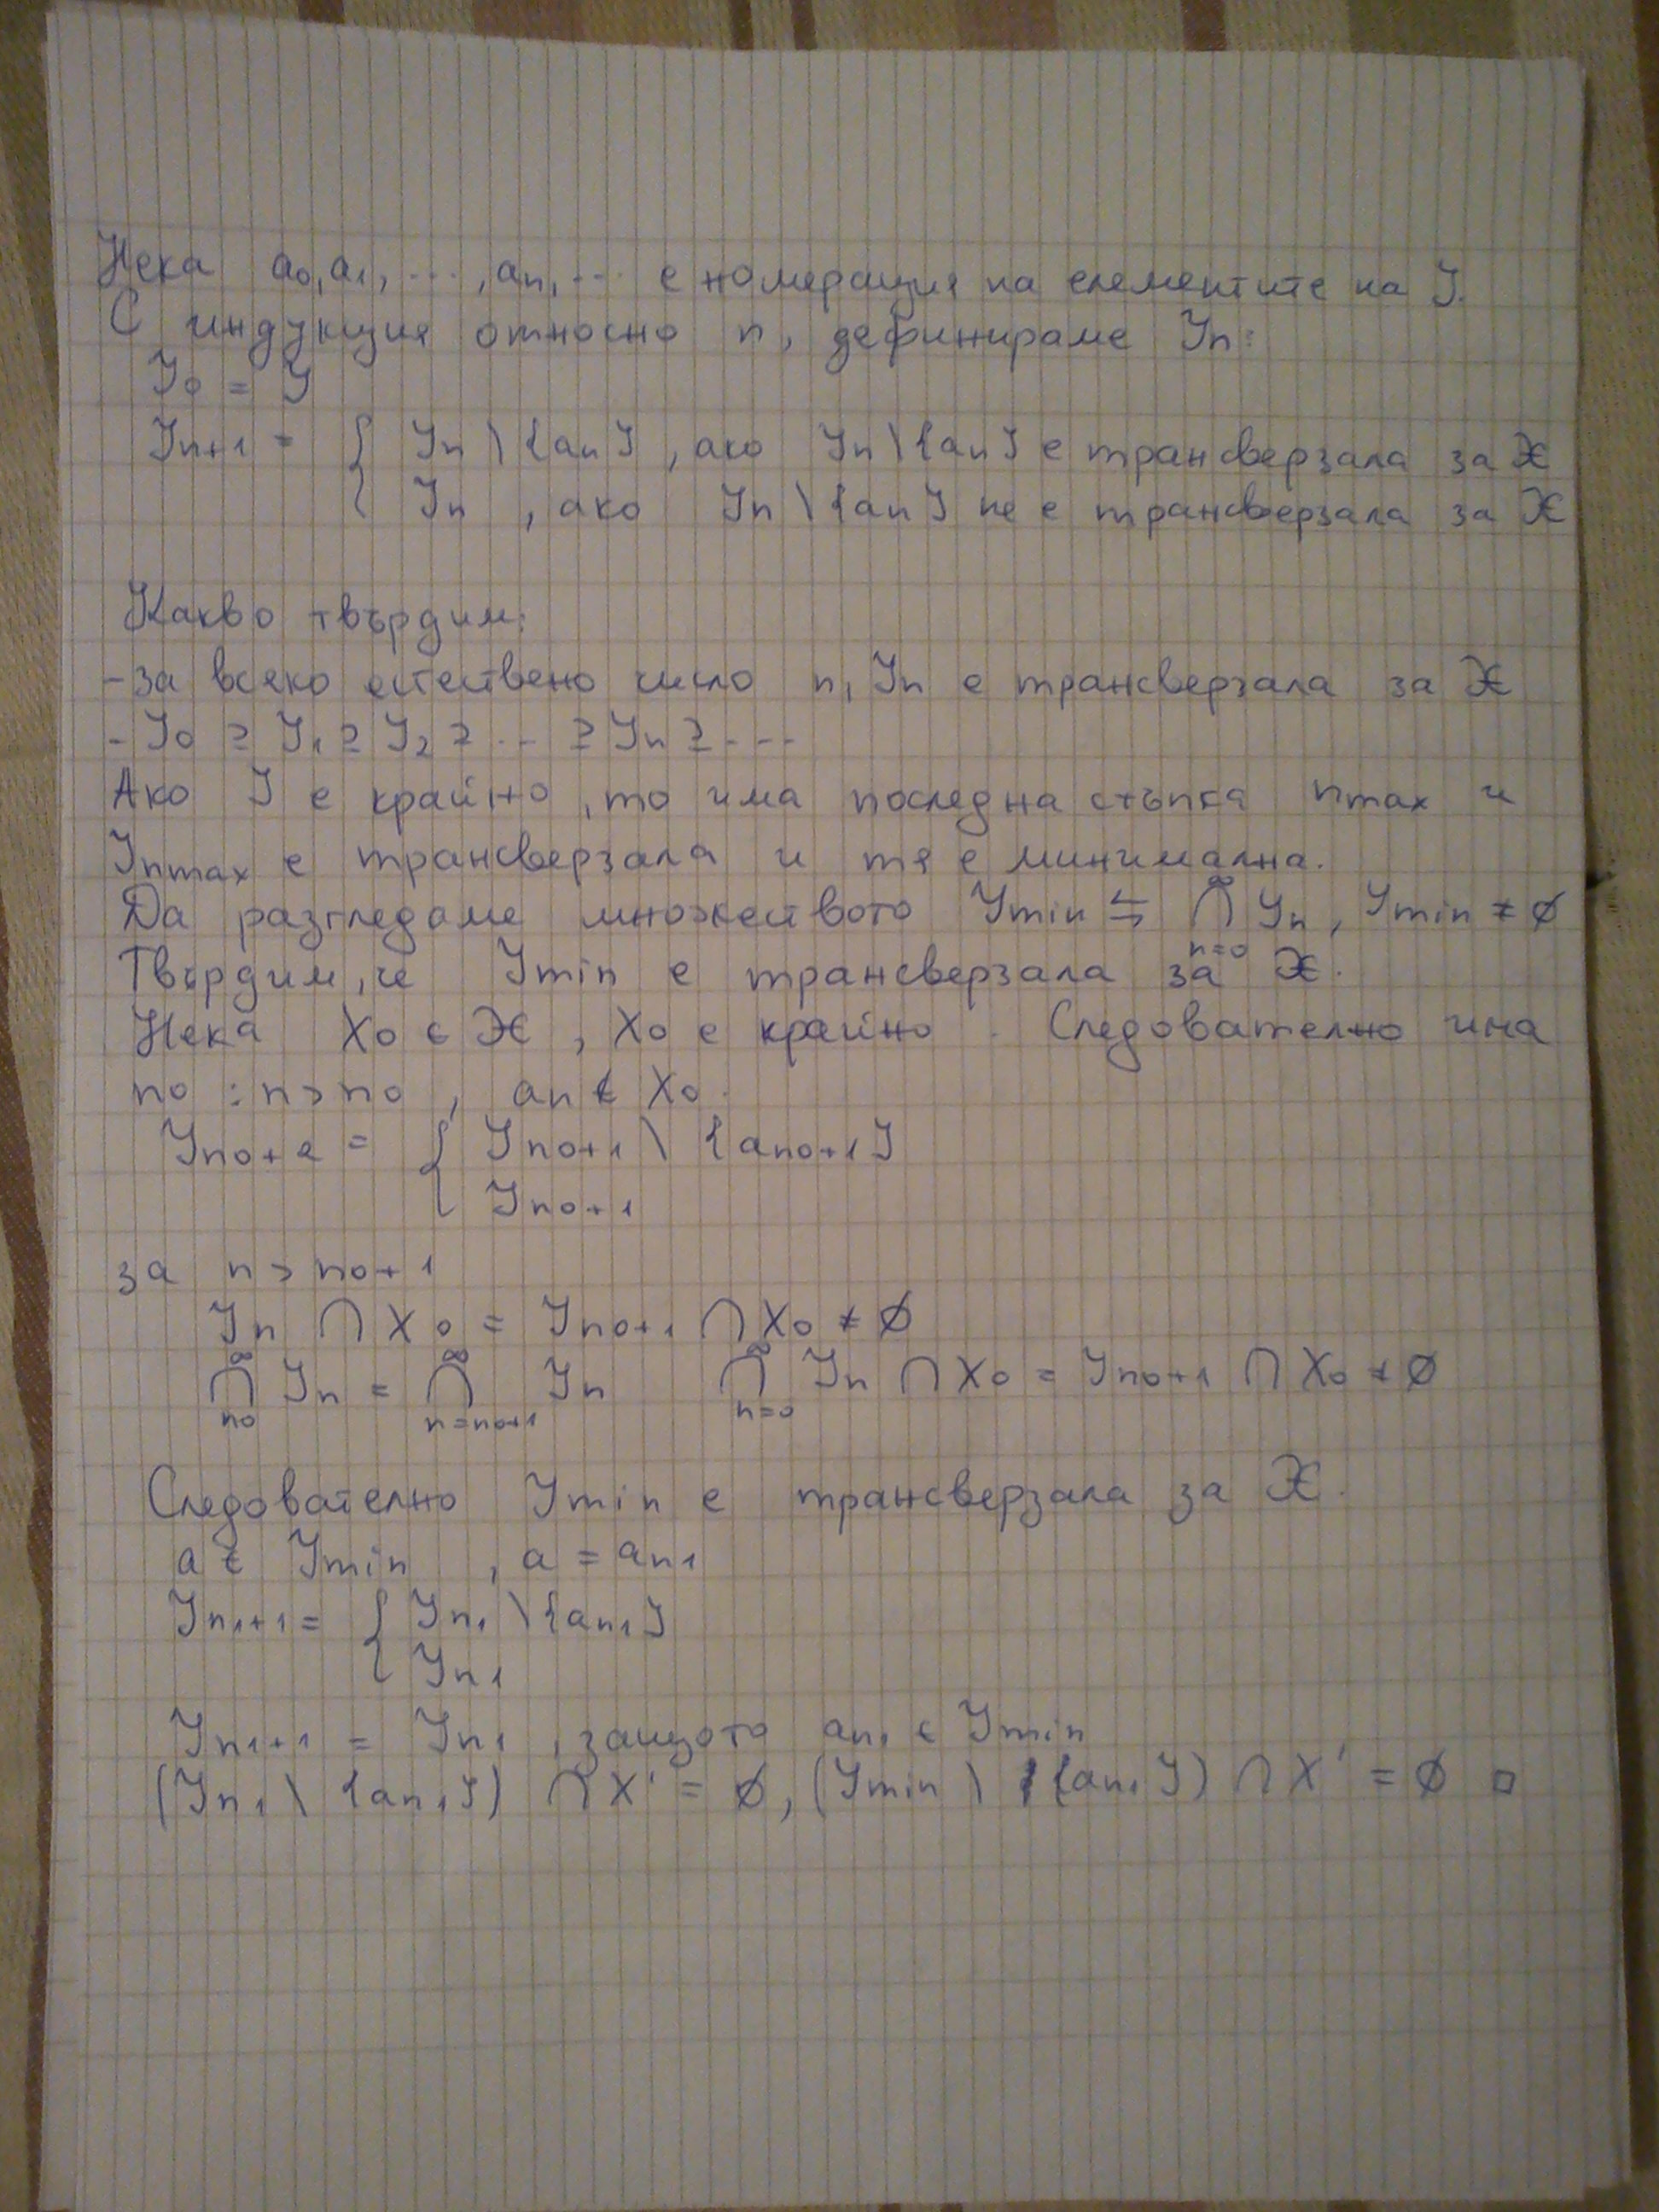 Нека a₀, a₁, ..., aₙ, ... е номерация на елементите на Y.
С индукция относно n, дефинираме Yₙ:
Y₀ = Y
Yₙ₊₁ = { Yₙ \ {aₙ}, ако Yₙ \ {aₙ} е трансверзала за X
{ Yₙ, ако Yₙ \ {aₙ} не е трансверзала за X
Какво твърдим:
- за всяко естествено число n, Yₙ е трансверзала за X
- Y₀ ⊇ Y₁ ⊇ Y₂ ⊇ ... ⊇ Yₙ ⊇ ...
Ако Y е крайно, то има последна стъпка nmax и
Ynmax е трансверзала и тя е минимална.
Да разгледаме множеството Ymin ⇆ ⋂_{n=0}^{∞} Yₙ, Ymin ≠ ∅
Твърдим, че Ymin е трансверзала за X.
Нека X₀ ∈ X, X₀ е крайно. Следователно има
n₀ : n > n₀, aₙ ∉ X₀.
Yn₀+2 = { Yn₀+1 \ {an₀+1}
{ Yn₀+1
за n > n₀+1
Yₙ ∩ X₀ = Yn₀+1 ∩ X₀ ≠ ∅
⋂_{n₀}^{∞} Yₙ = ⋂_{n=n₀+1}^{∞} Yₙ ⋂_{n=0}^{∞} Yₙ ∩ X₀ = Yn₀+1 ∩ X₀ ≠ ∅
Следователно Ymin е трансверзала за X.
a ∈ Ymin, a = an₁
Yn₁+1 = { Yn₁ \ {an₁}
{ Yn₁
Yn₁+1 = Yn₁, защото an₁ ∈ Ymin
(Yn₁ \ {an₁}) ∩ X' = ∅, (Ymin \ {an₁}) ∩ X' = ∅ □